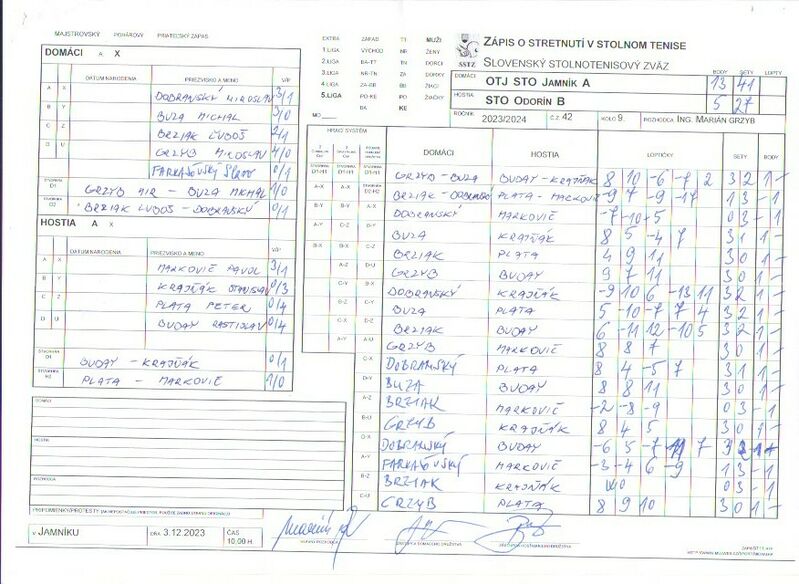 MAJSTROVSKÝ POHÁROVÝ PRIATEĽSKÝ ZÁPAS
DOMÁCI A X
DATUM NARODENIA PRIEZVISKO A MENO V/P
A X DOBRANSKÝ MIROSLAV 3/1
B Y BUZA MICHAL 3/0
C Z BRZIAK ĽUBOŠ 2/1
D U GRZYB MIROSLAV 4/0
FARKAŠOVSKÝ 0/1
ŠTVORHRA D1 GRZYB MIR - BUZA MICHAL 1/0
ŠTVORHRA D2 BRZIAK ĽUBOŠ - DOBRANSKÝ 0/1
HOSTIA A X
DATUM NARODENIA PRIEZVISKO A MENO V/P
A X MARKOVIČ PAVOL 3/1
B Y KRAJŇÁK STANISLAV 0/3
C Z PLATA PETER 0/4
D U BUDAY RASTISLAV 0/4
ŠTVORHRA H1 BUDAY - KRAJŇÁK 0/1
ŠTVORHRA H2 PLATA - MARKOVIČ 1/0
DOMÁCI
HOSTIA
ROZHODCA
V JAMNÍKU DŇA 3.12.2023 ČAS 10,00 H.
EXTRA ZÁPAD TT MUŽI
1.LIGA VÝCHOD NR ŽENY
2.LIGA BA-TT TN DORCI
3.LIGA NR-TN ZA DORKY
4.LIGA ZA-BB BB ŽIACI
5.LIGA PO-KE PO ŽIAČKY
BA KE
MO
SSTZ
ZÁPIS O STRETNUTÍ V STOLNOM TENISE
SLOVENSKÝ STOLNOTENISOVÝ ZVÄZ
BODY SETY LOPTY
DOMÁCI OTJ STO JAMNÍK A 13 41
HOSTIA STO ODORÍN B 5 27
ROČNÍK 2023/2024 Č.Z. 42 KOLO 9. ROZHODCA ING. MARIÁN GRZYB
HRACÍ SYSTÉM
DOMÁCI HOSTIA LOPTIČKY SETY BODY
GRZYB - BUZA BUDAY - KRAJŇÁK 8 10 -6 -7 2 3 2 1 -
BRZIAK - DOBRANSKÝ PLATA - MARKOVIČ -9 7 -9 -17 1 3 - 1
DOBRANSKÝ MARKOVIČ -7 -10 -5 0 3 - 1
BUZA KRAJŇÁK 8 5 -4 7 3 1 1 -
BRZIAK PLATA 4 9 11 3 0 1 -
GRZYB BUDAY 9 7 11 3 0 1 -
DOBRANSKÝ KRAJŇÁK -9 10 6 -13 11 3 2 1 -
BUZA PLATA 5 -10 -7 7 4 3 2 1 -
BRZIAK BUDAY 6 -11 12 -10 5 3 2 1 -
GRZYB MARKOVIČ 8 8 7 3 0 1 -
DOBRANSKÝ PLATA 8 4 -5 7 3 1 1 -
BUZA BUDAY 8 8 11 3 0 1 -
BRZIAK MARKOVIČ -2 -8 -9 0 3 - 1
GRZYB KRAJŇÁK 8 4 5 3 0 1 -
DOBRANSKÝ BUDAY -6 5 -7 11 7 3 2 1 -
FARKAŠOVSKÝ MARKOVIČ -3 -4 6 -9 1 3 - 1
BRZIAK KRAJŇÁK 0 3 - 1
GRZYB PLATA 8 9 10 3 0 1 -